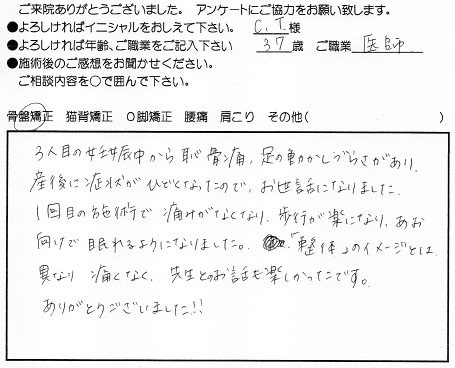 ご来院ありがとうございました。 アンケートにご協力をお願い致します。
●よろしければイニシャルをおしえて下さい。 C.T 様
●よろしければ年齢、ご職業をご記入下さい 37 歳 ご職業 医師
●施術後のご感想をお聞かせください。
ご相談内容を○で囲んで下さい。
骨盤矯正 猫背矯正 O脚矯正 腰痛 肩こり その他( )
3人目の妊娠中から恥骨痛、足の動かしづらさがあり、
産後に症状がひどくなったので、お世話になりました。
1回目の施術で痛みがなくなり、歩行が楽になり、あお
向けで眠れるようになりました。 「整体」のイメージとは
異なり 痛くなく、先生とのお話も楽しかったです。
ありがとうございました!!